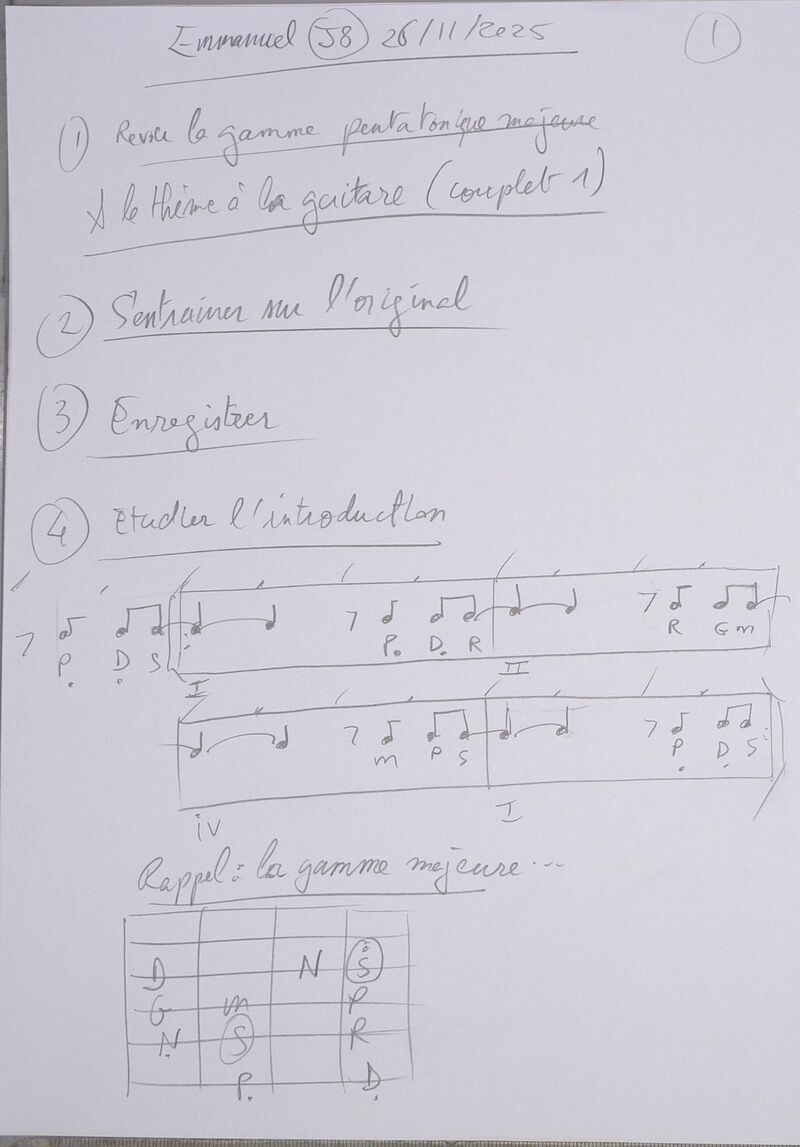 Emmanuel J8 26/11/2025 1
1 Revoir la gamme pentatonique majeure
& le thème à la guitare (couplet 1)
2 S'entrainer sur l'original
3 Enregistrer
4 Etudier l'introduction
P. D. S P. D. R R G m
I II
m P S P. D. S
iv I
Rappel : la gamme majeure...
D N S
G m P
N. S R
P. D.